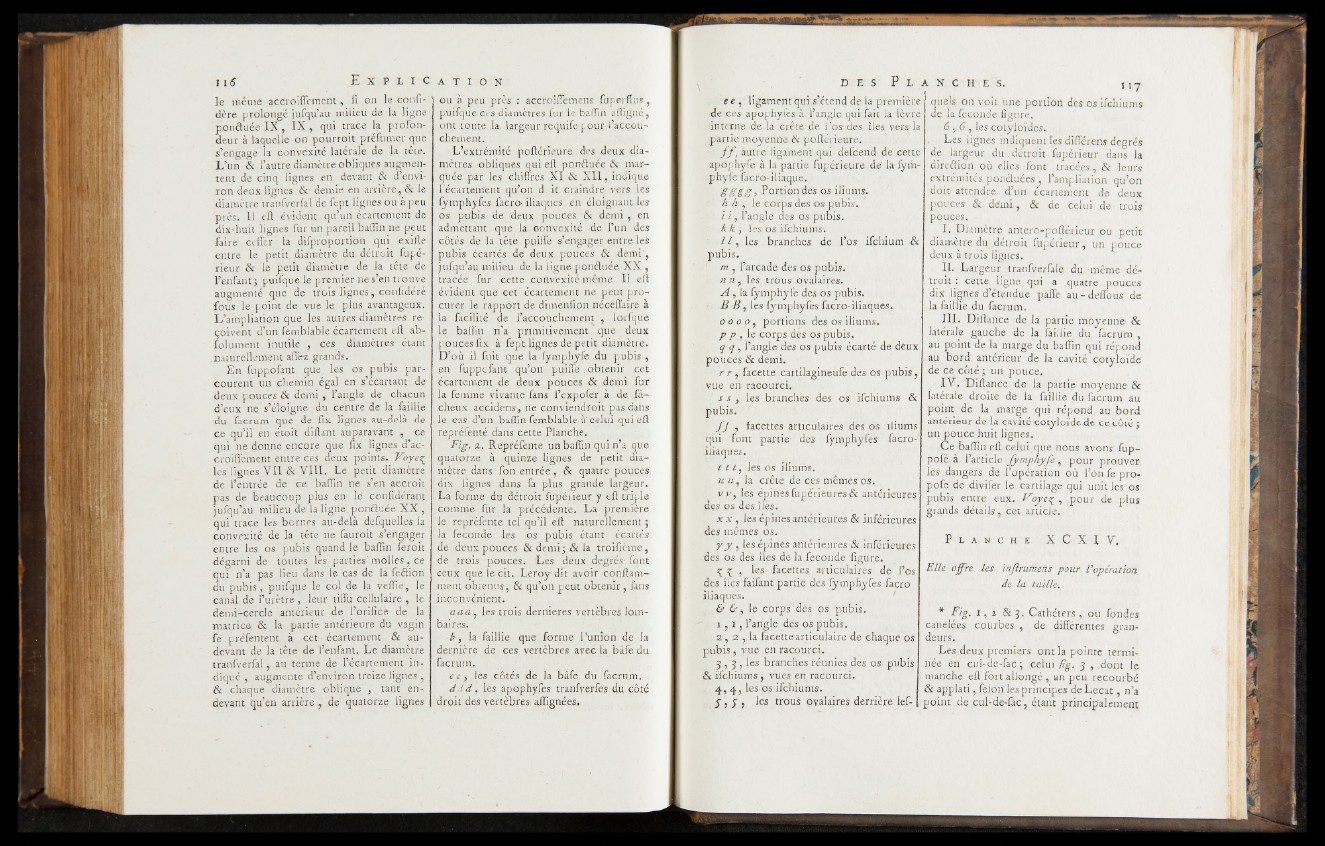 116 EXPLICATION
le même accroiſſement, ſi on le conſi-
dère prolongé juſqu'au milieu de la ligne
ponctuée IX, IX, qui trace la profon-
deur à laquelle on pourroit préſumer que
s'engage la convexité latérale de la tête.
L'un & l'autre diamètre obliques augmen-
tent de cinq lignes en devant & d'envi-
ron deux lignes & demie en arrière, & le
diamètre tranſverſal de ſept lignes ou à peu
près. Il eſt évident qu'un écartement de
dix-huit lignes ſur un pareil baſſin ne peut
faire ceſſer la diſproportion qui exiſte
entre le petit diamètre du détroit ſupé-
rieur & le petit diamètre de la tête de
l'enfant; puiſque le premier ne s'en trouve
augmenté que de trois lignes, conſidéré
ſous le point de vue le plus avantageux.
L'ampliation que les autres diamètres re-
çoivent d'un ſemblable écartement eſt ab-
ſolument inutile, ces diamètres étant
naturellement aſſez grands.
En ſuppoſant que les os pubis par-
courent un chemin égal en s'écartant de
deux pouces & demi, l'angle de chacun
d'eux ne s'éloigne du centre de la ſaillie
du ſacrum que de ſix lignes au-delà de
ce qu'il en étoit diſtant auparavant, ce
qui ne donne encore que ſix lignes d'ac-
croiſſement entre ces deux points. Voyez
les lignes VII & VIII. Le petit diamètre
de l'entrée de ce baſſin ne s'en accroît
pas de beaucoup plus en le conſidérant
juſqu'au milieu de la ligne ponctuée XX,
qui trace les bornes au-delà deſquelles la
convexité de la tête ne ſauroit s'engager
entre les os pubis quand le baſſin ſeroit
dégarni de toutes les parties molles, ce
qui n'a pas lieu dans le cas de la ſection
du pubis, puiſque le col de la veſſie, le
canal de l'urètre, leur tiſſu cellulaire, le
demi-cercle antérieur de l'orifice de la
matrice & la partie antérieure du vagin
ſe préſentent à cet écartement & au-
devant de la tête de l'enfant. Le diamètre
tranſverſal, au terme de l'écartement in-
diqué, augmente d'environ treize lignes,
& chaque diamètre oblique, tant en-
devant qu'en arrière, de quatorze lignes
ou à peu près: accroiſſemens ſuperflus,
puiſque ces diamètres ſur le baſſin aſſigné,
ont toute la largeur requiſe pour l'accou-
chement.
L'extrémité poſtérieure des deux dia-
mètres obliques qui eſt ponctuée & mar-
quée par les chiffres XI & XII, indique
l'écartement qu'on doit craindre vers les
ſymphyſes ſacro-iliaques en éloignant les
os pubis de deux pouces & demi, en
admettant que la convexité de l'un des
côtés de la tête puiſſe s'engager entre les
pubis écartés de deux pouces & demi,
juſqu'au milieu de la ligne ponctuée XX,
tracée ſur cette convexité même. Il eſt
évident que cet écartement ne peut pro-
curer le rapport de dimenſion néceſſaire à
la facilité de l'accouchement, lorſque
le baſſin n'a primitivement que deux
pouces ſix à ſept lignes de petit diamètre.
D'où il ſuit que la ſymphyſe du pubis,
en ſuppoſant qu'on puiſſe obtenir cet
écartement de deux pouces & demi ſur
la femme vivante ſans l'expoſer à de fâ-
cheux accidens, ne conviendroit pas dans
le cas d'un baſſin ſemblable à celui qui eſt
repréſenté dans cette Planche.
Fig. 2. Repréſente un baſſin qui n'a que
quatorze à quinze lignes de petit dia-
mètre dans ſon entrée, & quatre pouces
dix lignes dans ſa plus grande largeur.
La forme du détroit ſupérieur y eſt triple
comme ſur la précédente. La première
le repréſente tel qu'il eſt naturellement;
la ſeconde les os pubis étant écartés
de deux pouces & demi; & la troiſième,
de trois pouces. Les deux degrés ſont
ceux que le cit. Leroy dit avoir conſtam-
ment obtenus, & qu'on peut obtenir, ſans
inconvénient.
aaa, les trois dernieres vertèbres lom-
baires.
b, la ſaillie que forme l'union de la
dernière de ces vertèbres avec la bâſe du
ſacrum.
cc, les côtés de la bâſe du ſacrum.
ddd, les apophyſes tranſverſes du côté
droit des vertèbres aſſignées.
DES PLANCHES. 117
ee, ligament qui s'étend de la première
de ces apophyſes à l'angle qui fait la lèvre
interne de la crête de l'os des îles vers la
partie moyenne & poſtérieure.
ff, autre ligament qui deſcend de cette
apophyſe à la partie ſupérieure de la ſym-
phyſe ſacro-iliaque.
gggg, Portion des os iliums.
hh, le corps des os pubis.
ii, l'angle des os pubis.
kk, les os iſchiums.
ll, les branches de l'os iſchium &
pubis.
m, l'arcade des os pubis.
nn, les trous ovalaires.
A, la ſymphyſe des os pubis.
BB, les ſymphyſes ſacro-iliaques.
oooo, portions des os iliums.
pp, le corps des os pubis.
qq, l'angle des os pubis écarté de deux
pouces & demi.
rr, facette cartilagineuſe des os pubis,
vue en racourci.
ss, les branches des os iſchiums &
pubis.
ſſ, facettes articulaires des os iliums
qui font partie des ſymphyſes ſacro-
iliaques.
ttt, les os iliums.
uu, la crête de ces mêmes os.
vv, les épines ſupérieures & antérieures
des os des îles.
xx, les épines antérieures & inférieures
des mêmes os.
yy, les épines antérieures & inférieures
des os des îles de la ſeconde figure.
zz, les facettes articulaires de l'os
des îles faiſant partie des ſymphyſes ſacro
iliaques.
& &, le corps des os pubis.
1, 1, l'angle des os pubis.
2, 2, la facette articulaire de chaque os
pubis, vue en racourci.
3, 3, les branches réunies des os pubis
& iſchiums, vues en racourci.
4, 4, les os iſchiums.
5, 5, les trous ovalaires derrière leſ-
quels on voit une portion des os iſchiums
de la ſeconde figure.
6, 6, les cotyloïdes.
Les lignes indiquent les différens degrés
de largeur du détroit ſupérieur dans la
direction où elles ſont tracées, & leurs
extrémités ponctuées, l'ampliation qu'on
doit attendre d'un écartement de deux
pouces & demi, & de celui de trois
pouces.
I. Diamètre antero-poſtérieur ou petit
diamètre du détroit ſupérieur, un pouce
deux à trois lignes.
II. Largeur tranſverſale du même dé-
troit: cette ligne qui a quatre pouces
dix lignes d'étendue paſſe au-deſſous de
la ſaillie du ſacrum.
III. Diſtance de la partie moyenne &
latérale gauche de la ſaillie du ſacrum,
au point de la marge du baſſin qui répond
au bord antérieur de la cavité cotyloïde
de ce côté; un pouce.
IV. Diſtance de la partie moyenne &
latérale droite de la ſaillie du ſacrum au
point de la marge qui répond au bord
antérieur de la cavité cotyloïde de ce côté;
un pouce huit lignes.
Ce baſſin eſt celui que nous avons ſup-
poſé à l'article ſymphyſe, pour prouver
les dangers de l'opération où l'on ſe pro-
poſe de diviſer le cartilage qui unit les os
pubis entre eux. Voyez, pour de plus
grands détails, cet article.
PLANCHE XCXIV.
Elle offre les inſtrumens pour l'opération
de la taille.
* Fig. 1, 2 & 3. Cathéters, ou ſondes
canelées courbes, de différentes gran-
deurs.
Les deux premiers ont la pointe termi-
née en cul-de-ſac; celui fig. 3, dont le
manche eſt fort allongé, un peu recourbé
& applati, ſelon les principes de Lecat, n'a
point de cul-de-ſac, étant principalement